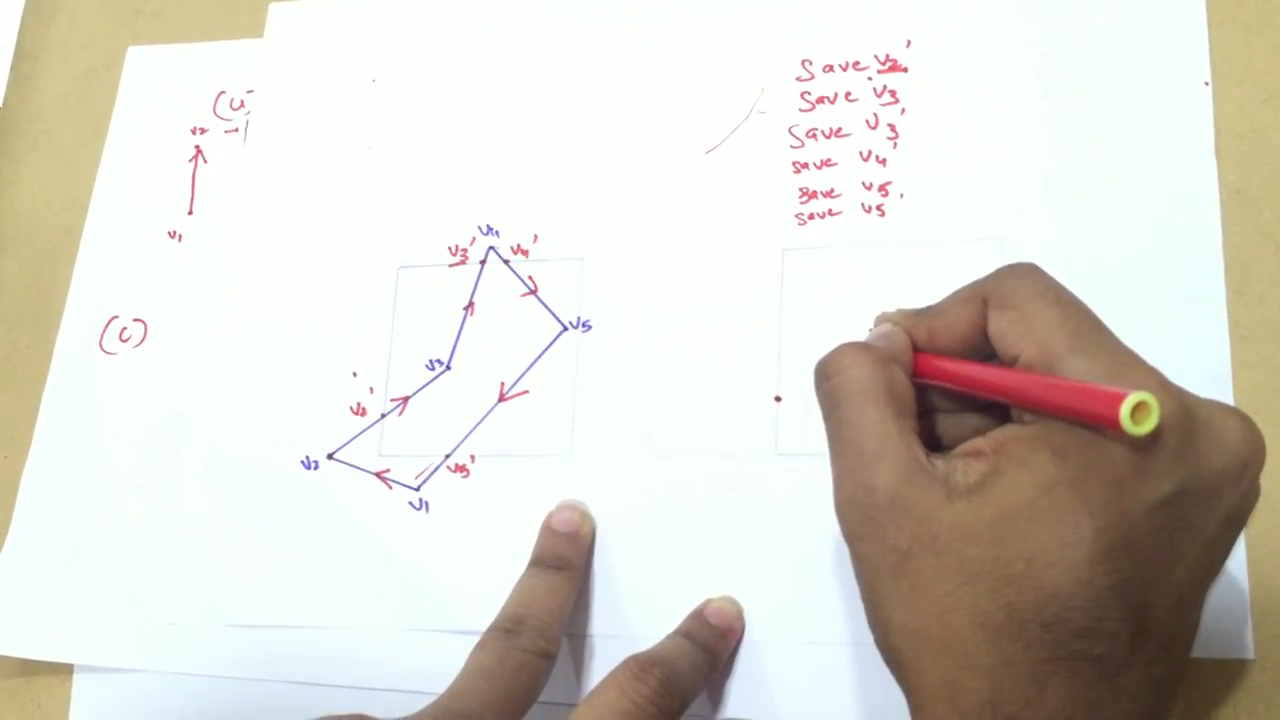 Save v2'
Save v3,
Save v3'
save v4'
save v5,
save v5
v2
v1
(c)
v4
v3'
v4'
v5
v3
v2'
v2
v5'
v1